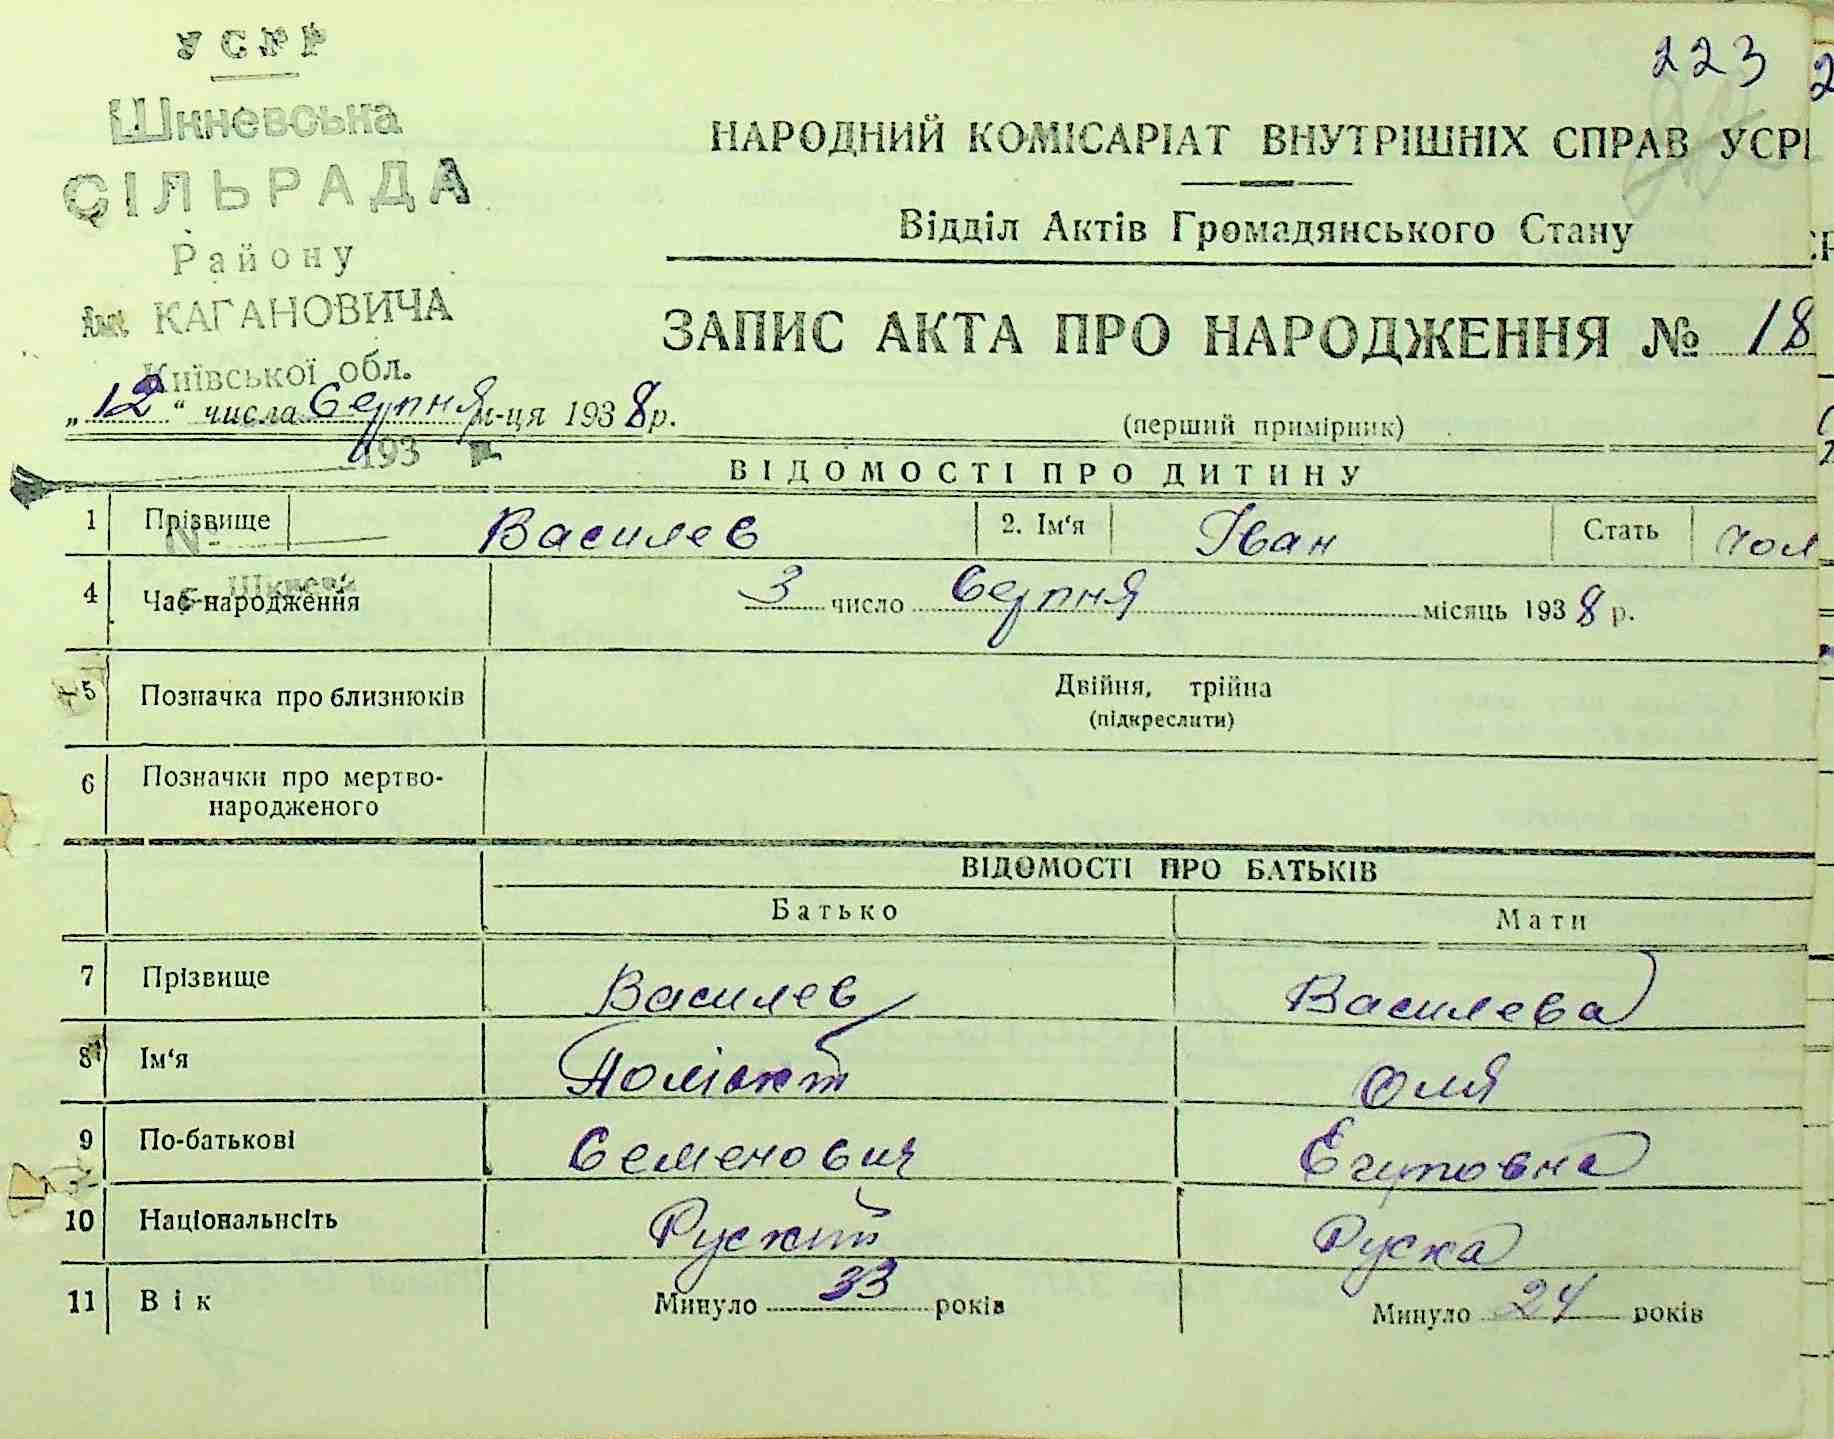 УСРР
223
Шкневська
СІЛЬРАДА
Району
Ім. КАГАНОВИЧА
Київської обл.
НАРОДНИЙ КОМІСАРІАТ ВНУТРІШНІХ СПРАВ УСРР
Відділ Актів Громадянського Стану
ЗАПИС АКТА ПРО НАРОДЖЕННЯ № 18
„12“ числа Серпня м-ця 1938 р.
(перший примірник)
193 р.
ВІДОМОСТІ ПРО ДИТИНУ
1 Прізвище Василев 2. Ім‘я Іван Стать чол
№
с. Шкнева
4 Час народження 3 число Серпня місяць 1938 р.
5 Позначка про близнюків Двійня, трійна
(підкреслити)
6 Позначки про мертво-
народженого
ВІДОМОСТІ ПРО БАТЬКІВ
Батько Мати
7 Прізвище Василев Василева
8 Ім‘я Оля
9 По-батькові Семенович Егуповна
10 Національність Руский Руска
11 Вік Минуло 33 років Минуло 24 років